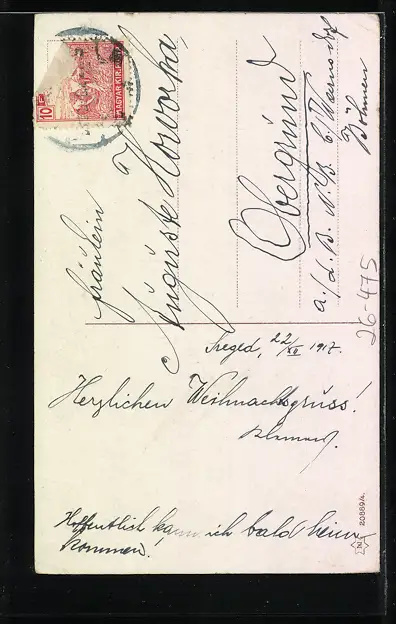 Szeged, 22/XII 1917.
Herzlichen Weihnachtsgruss!
Hoffentlich kann ich bald heim
kommen.
Fräulein
Auguste Howorka,
Obergrund
a./d. B. N.B. b/
Böhmen
26-475
20889/4.
10 F
MAGYAR KIR. POSTA